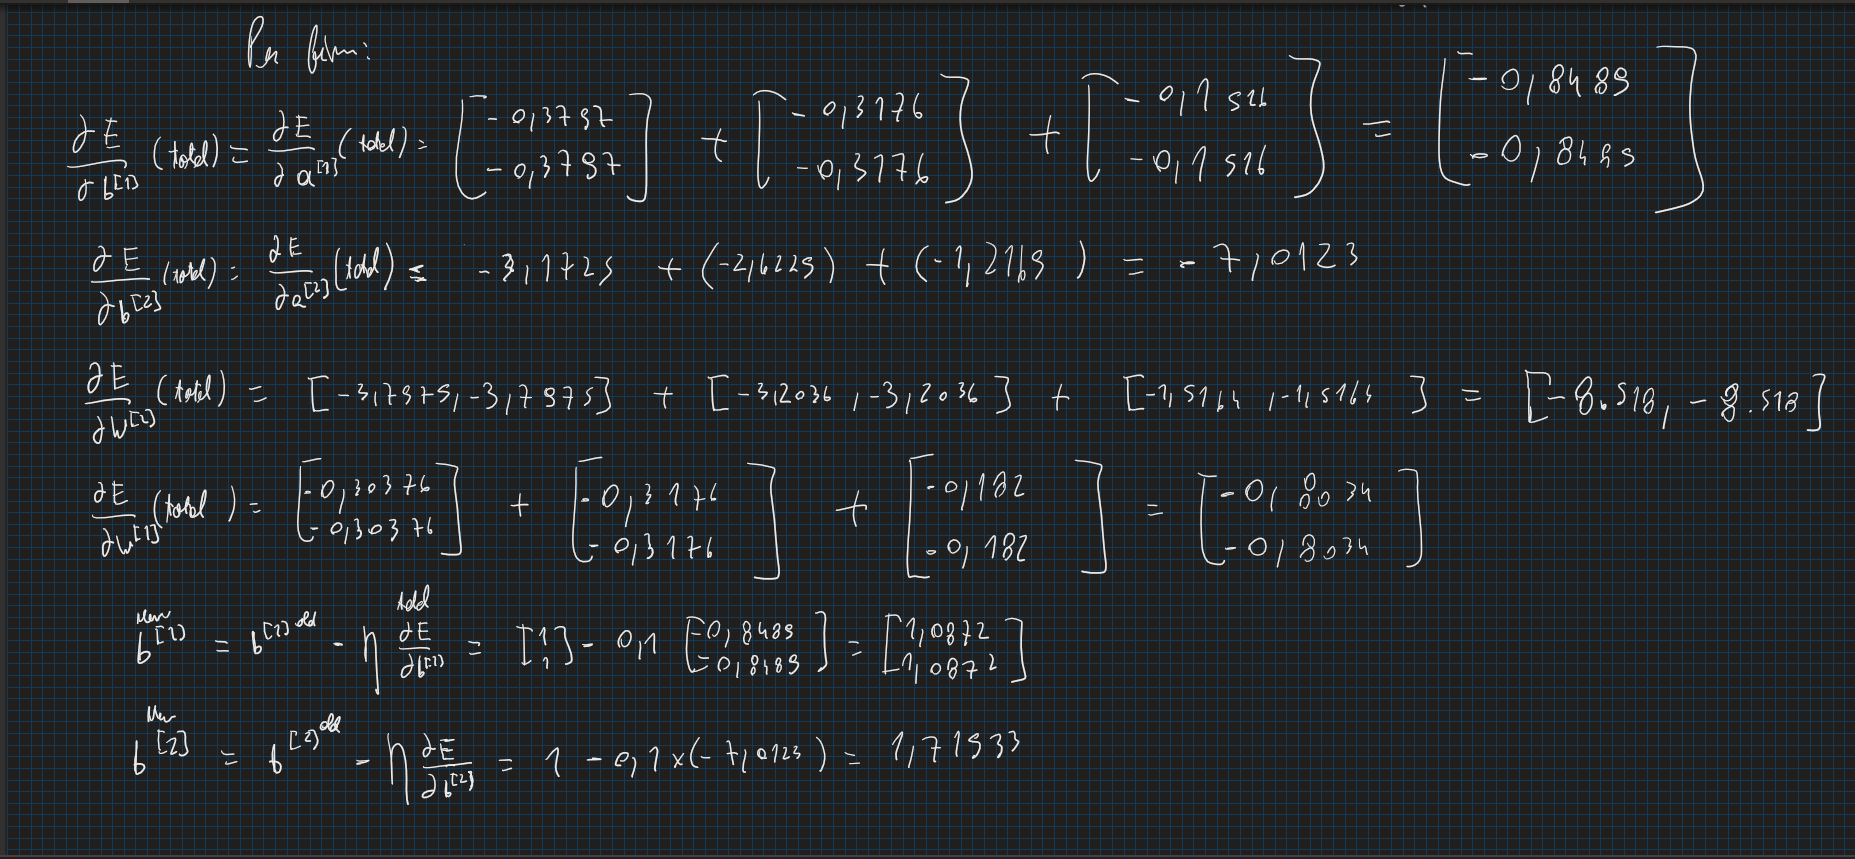 Per finir:
∂E/∂b^[1] (total) = ∂E/∂a^[1] (total) = [-0,3797 -0,3797] + [-0,3176 -0,3176] + [-0,1516 -0,1516] = [-0,8489 -0,8489]
∂E/∂b^[2] (total) = ∂E/∂a^[2] (total) = -3,1725 + (-2,6229) + (-1,2169) = -7,0123
∂E/∂W^[2] (total) = [-3,7975, -3,7975] + [-3,2036, -3,2036] + [-1,5164, -1,5164] = [-8.518, -8.518]
∂E/∂W^[1] (total) = [-0,30376 -0,30376] + [-0,3176 -0,3176] + [-0,182 -0,182] = [-0,8034 -0,8034]
b^[1] new = b^[1] old - η ∂E/∂b^[1] total = [1 1] - 0,1 [-0,8489 -0,8489] = [1,0872 1,0872]
b^[2] new = b^[2] old - η ∂E/∂b^[2] = 1 - 0,1 × (-7,0123) = 1,71933